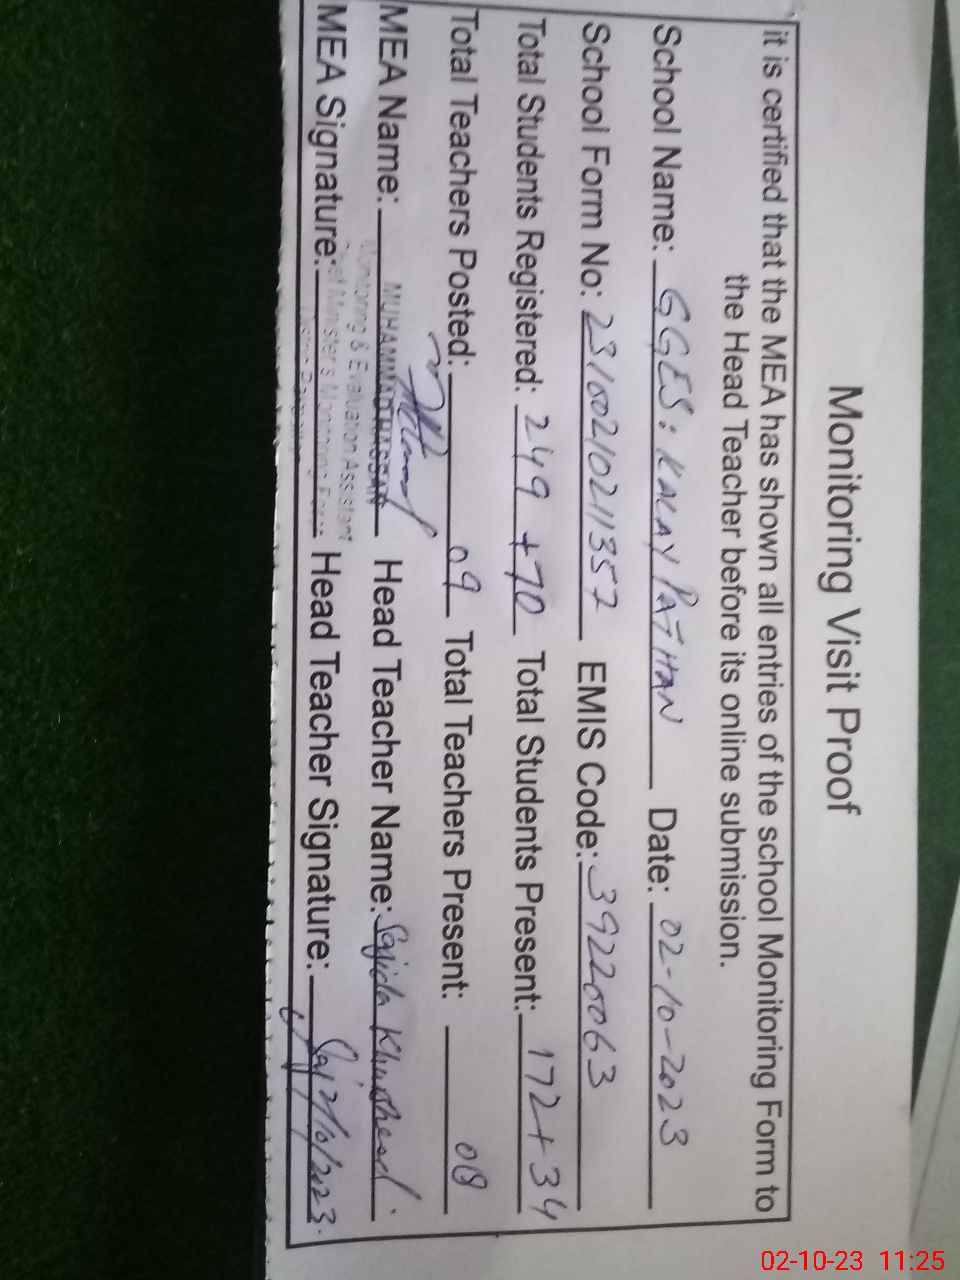 Monitoring Visit Proof
it is certified that the MEA has shown all entries of the school Monitoring Form to
the Head Teacher before its online submission.
School Name: GGES: KALAY PATHAN Date: 02-10-2023
School Form No: 23100210211357 EMIS Code: 39220063
Total Students Registered: 249 +70 Total Students Present: 172+34
Total Teachers Posted: 09 Total Teachers Present: 08
MEA Name: MUHAMMAD HASSAN Head Teacher Name: Sajida Khursheed.
Monitoring & Evaluation Assistant
Chief Minister's Monitoring Force
MEA Signature: Head Teacher Signature: 2/10/2023.
02-10-23 11:25